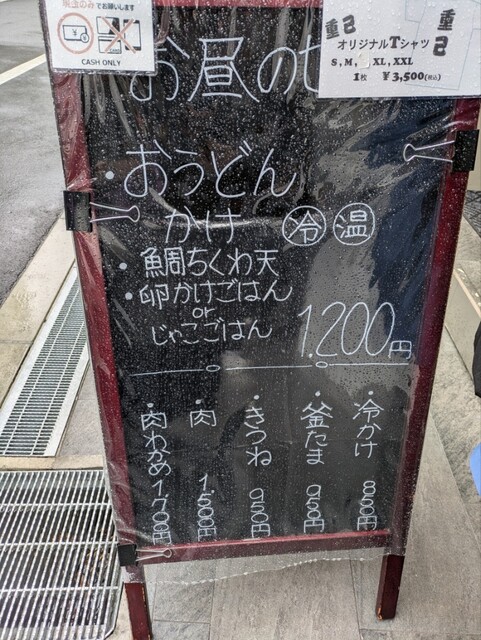 現金のみでお願いします
CASH ONLY
重己
オリジナルTシャツ
S, M, XL, XXL
1枚 ¥3,500(税込)
重己
お昼のセ
・おうどん
かけ 冷 温
・鯛ちくわ天
・卵かけごはん
or
じゃこごはん
1.200円
・冷かけ 850円
・釜たま 950円
・きつね 950円
・肉 1.500円
・肉わかめ 1.700円